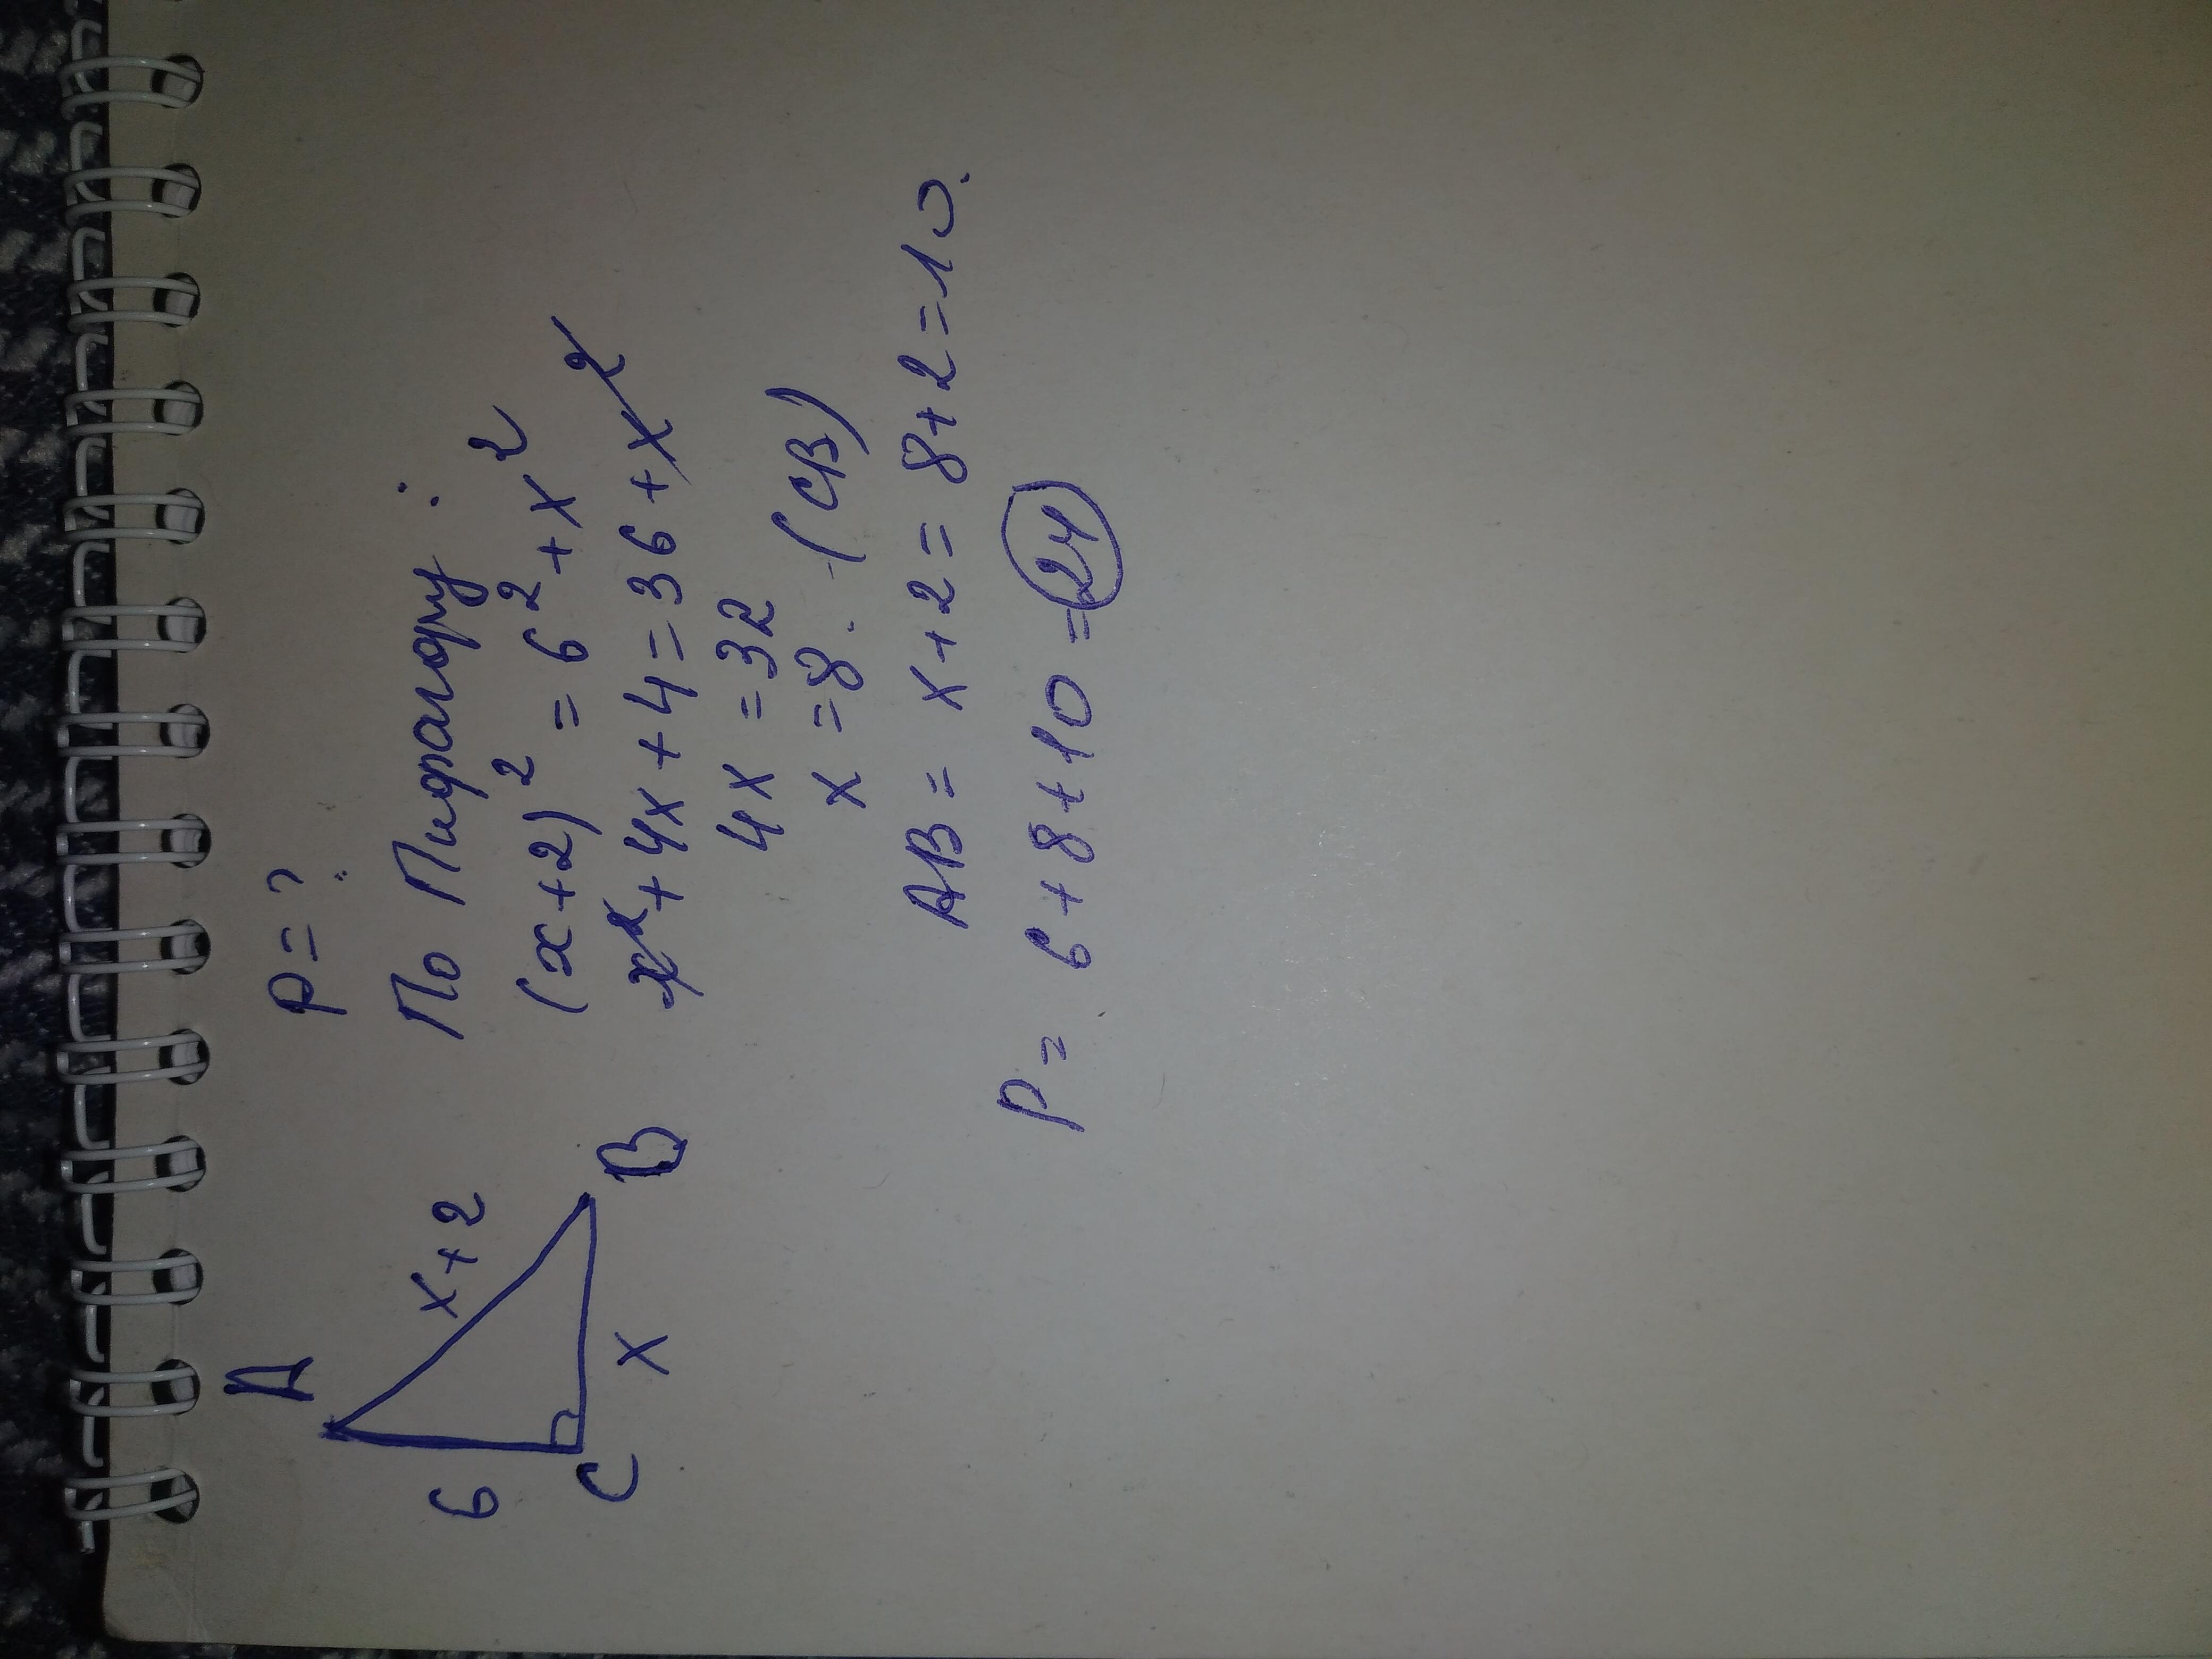 P=?
A
6
x+2
C
x
B
По Пифагору:
(x+2)² = 6² + x²
x² + 4x + 4 = 36 + x²
4x = 32
x = 8. (CB)
AB = x+2 = 8+2 = 10.
P = 6+8+10 = 24